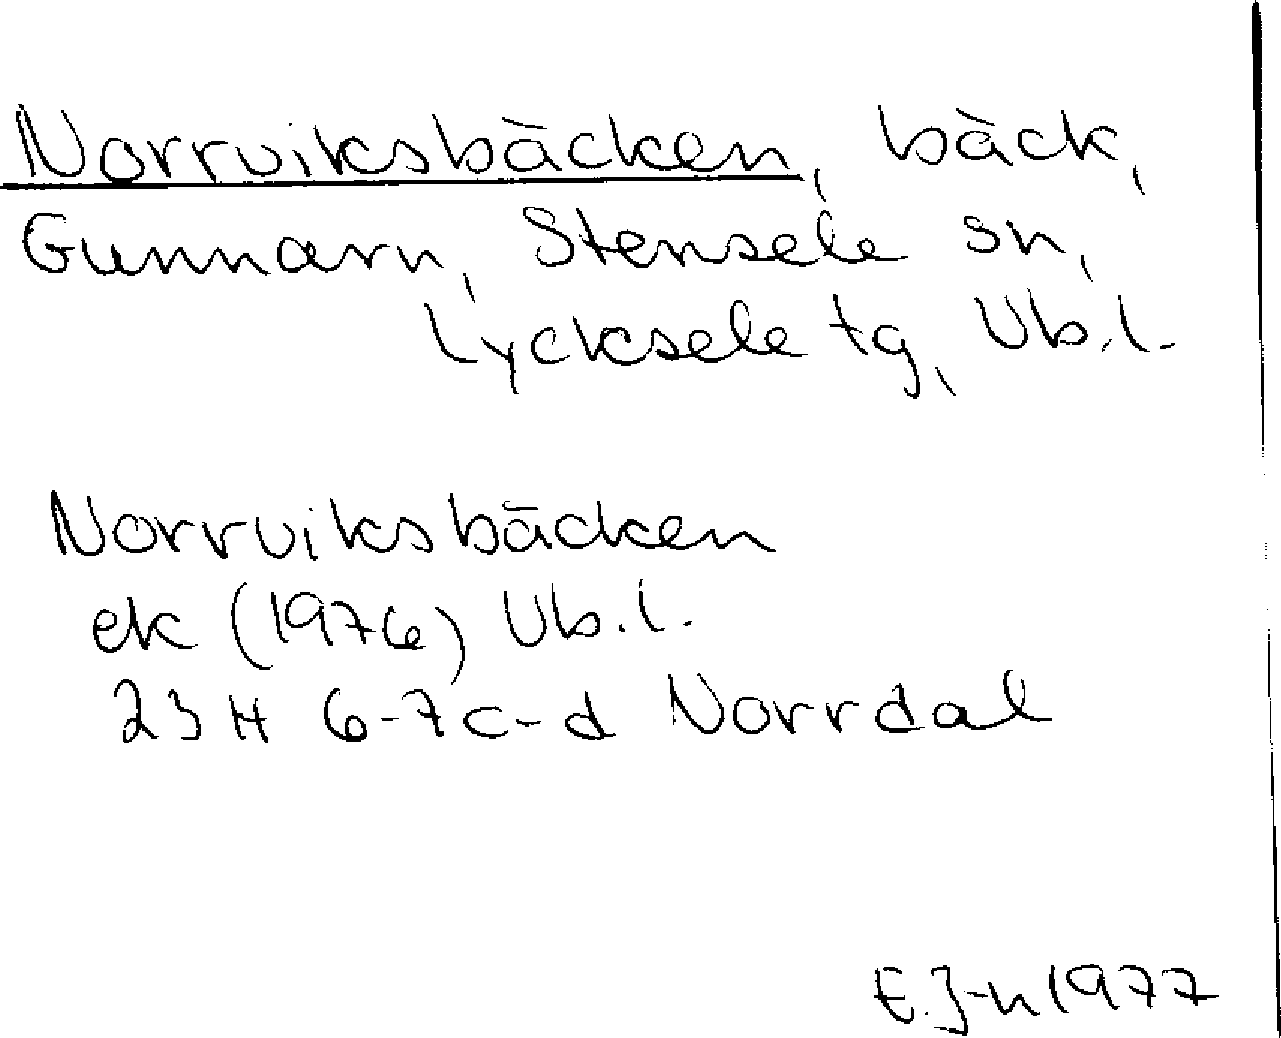 Norrviksbäcken, bäck,
Gunnarn, Stensele sn,
Lycksele tg, Vb.l.
Norrviksbäcken
ek (1976) Vb.l.
23 H 6-7c-d Norrdal
E.J-n 1977